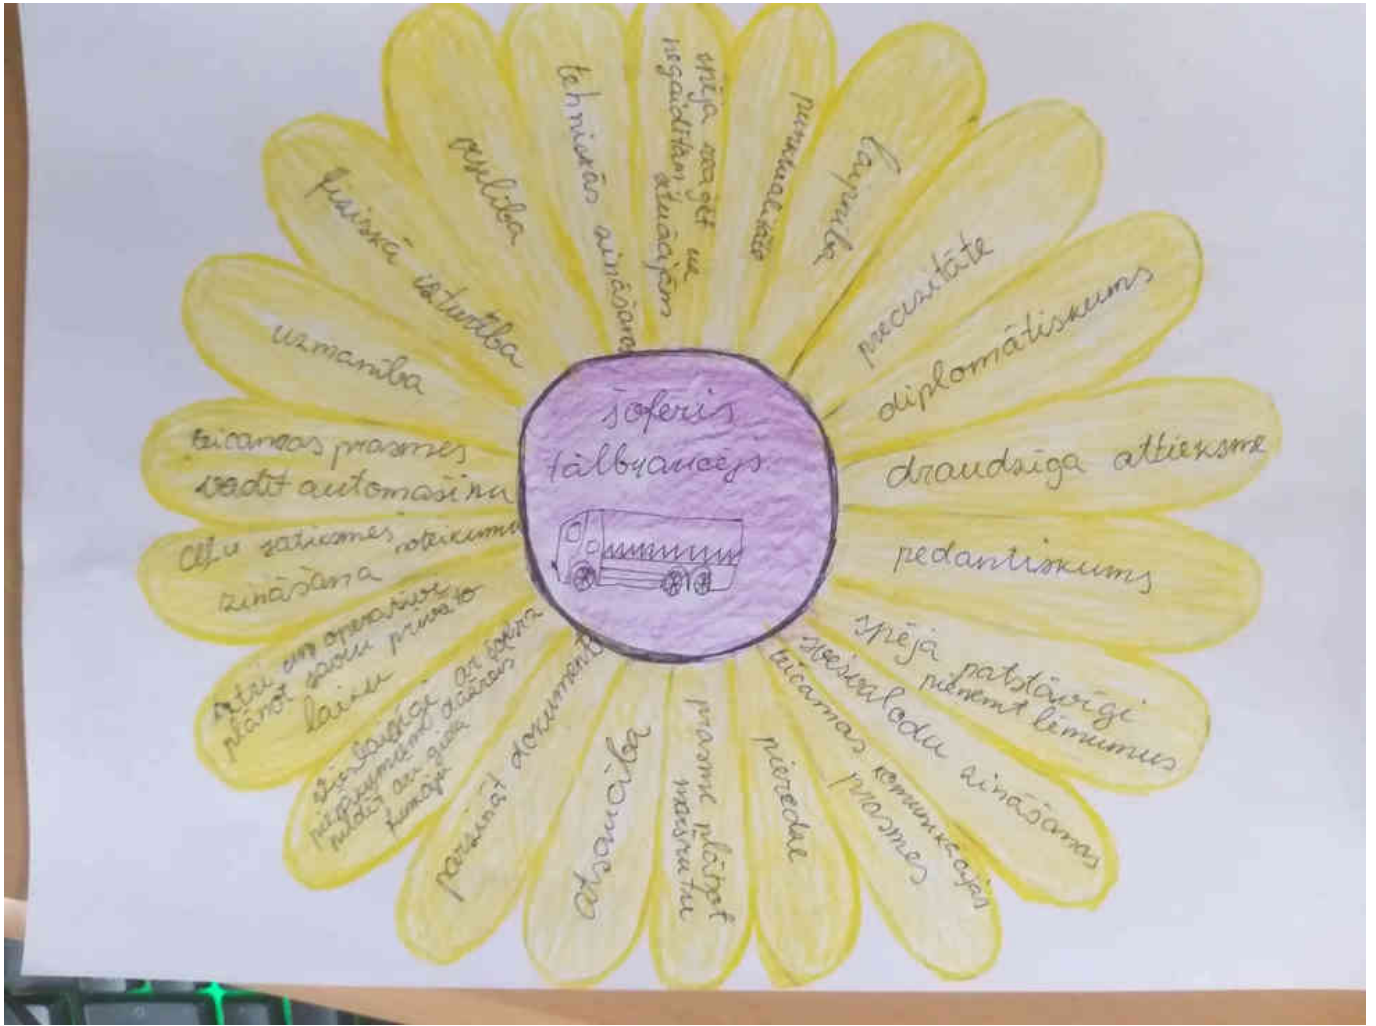 šoferis
tālbraucējs
spēja reaģēt uz
negaidītām situācijām
punktualitāte
laipnība
precizitāte
diplomātiskums
draudzīga attieksme
pedantiskums
spēja patstāvīgi
pieņemt lēmumus
svešvalodu zināšanas
teicamas komunikācijas
prasmes
pieredze
prasme plānot
maršrutu
atsaucība
pārzināt dokumentu
ar šofera
pienākumiem
laiku
ātri un operatīvi
plānot savu privāto
ceļu satiksmes noteikumu
zināšana
teicamas prasmes
vadīt automašīnu
uzmanība
fiziskā izturība
veselība
tehniskās zināšanas